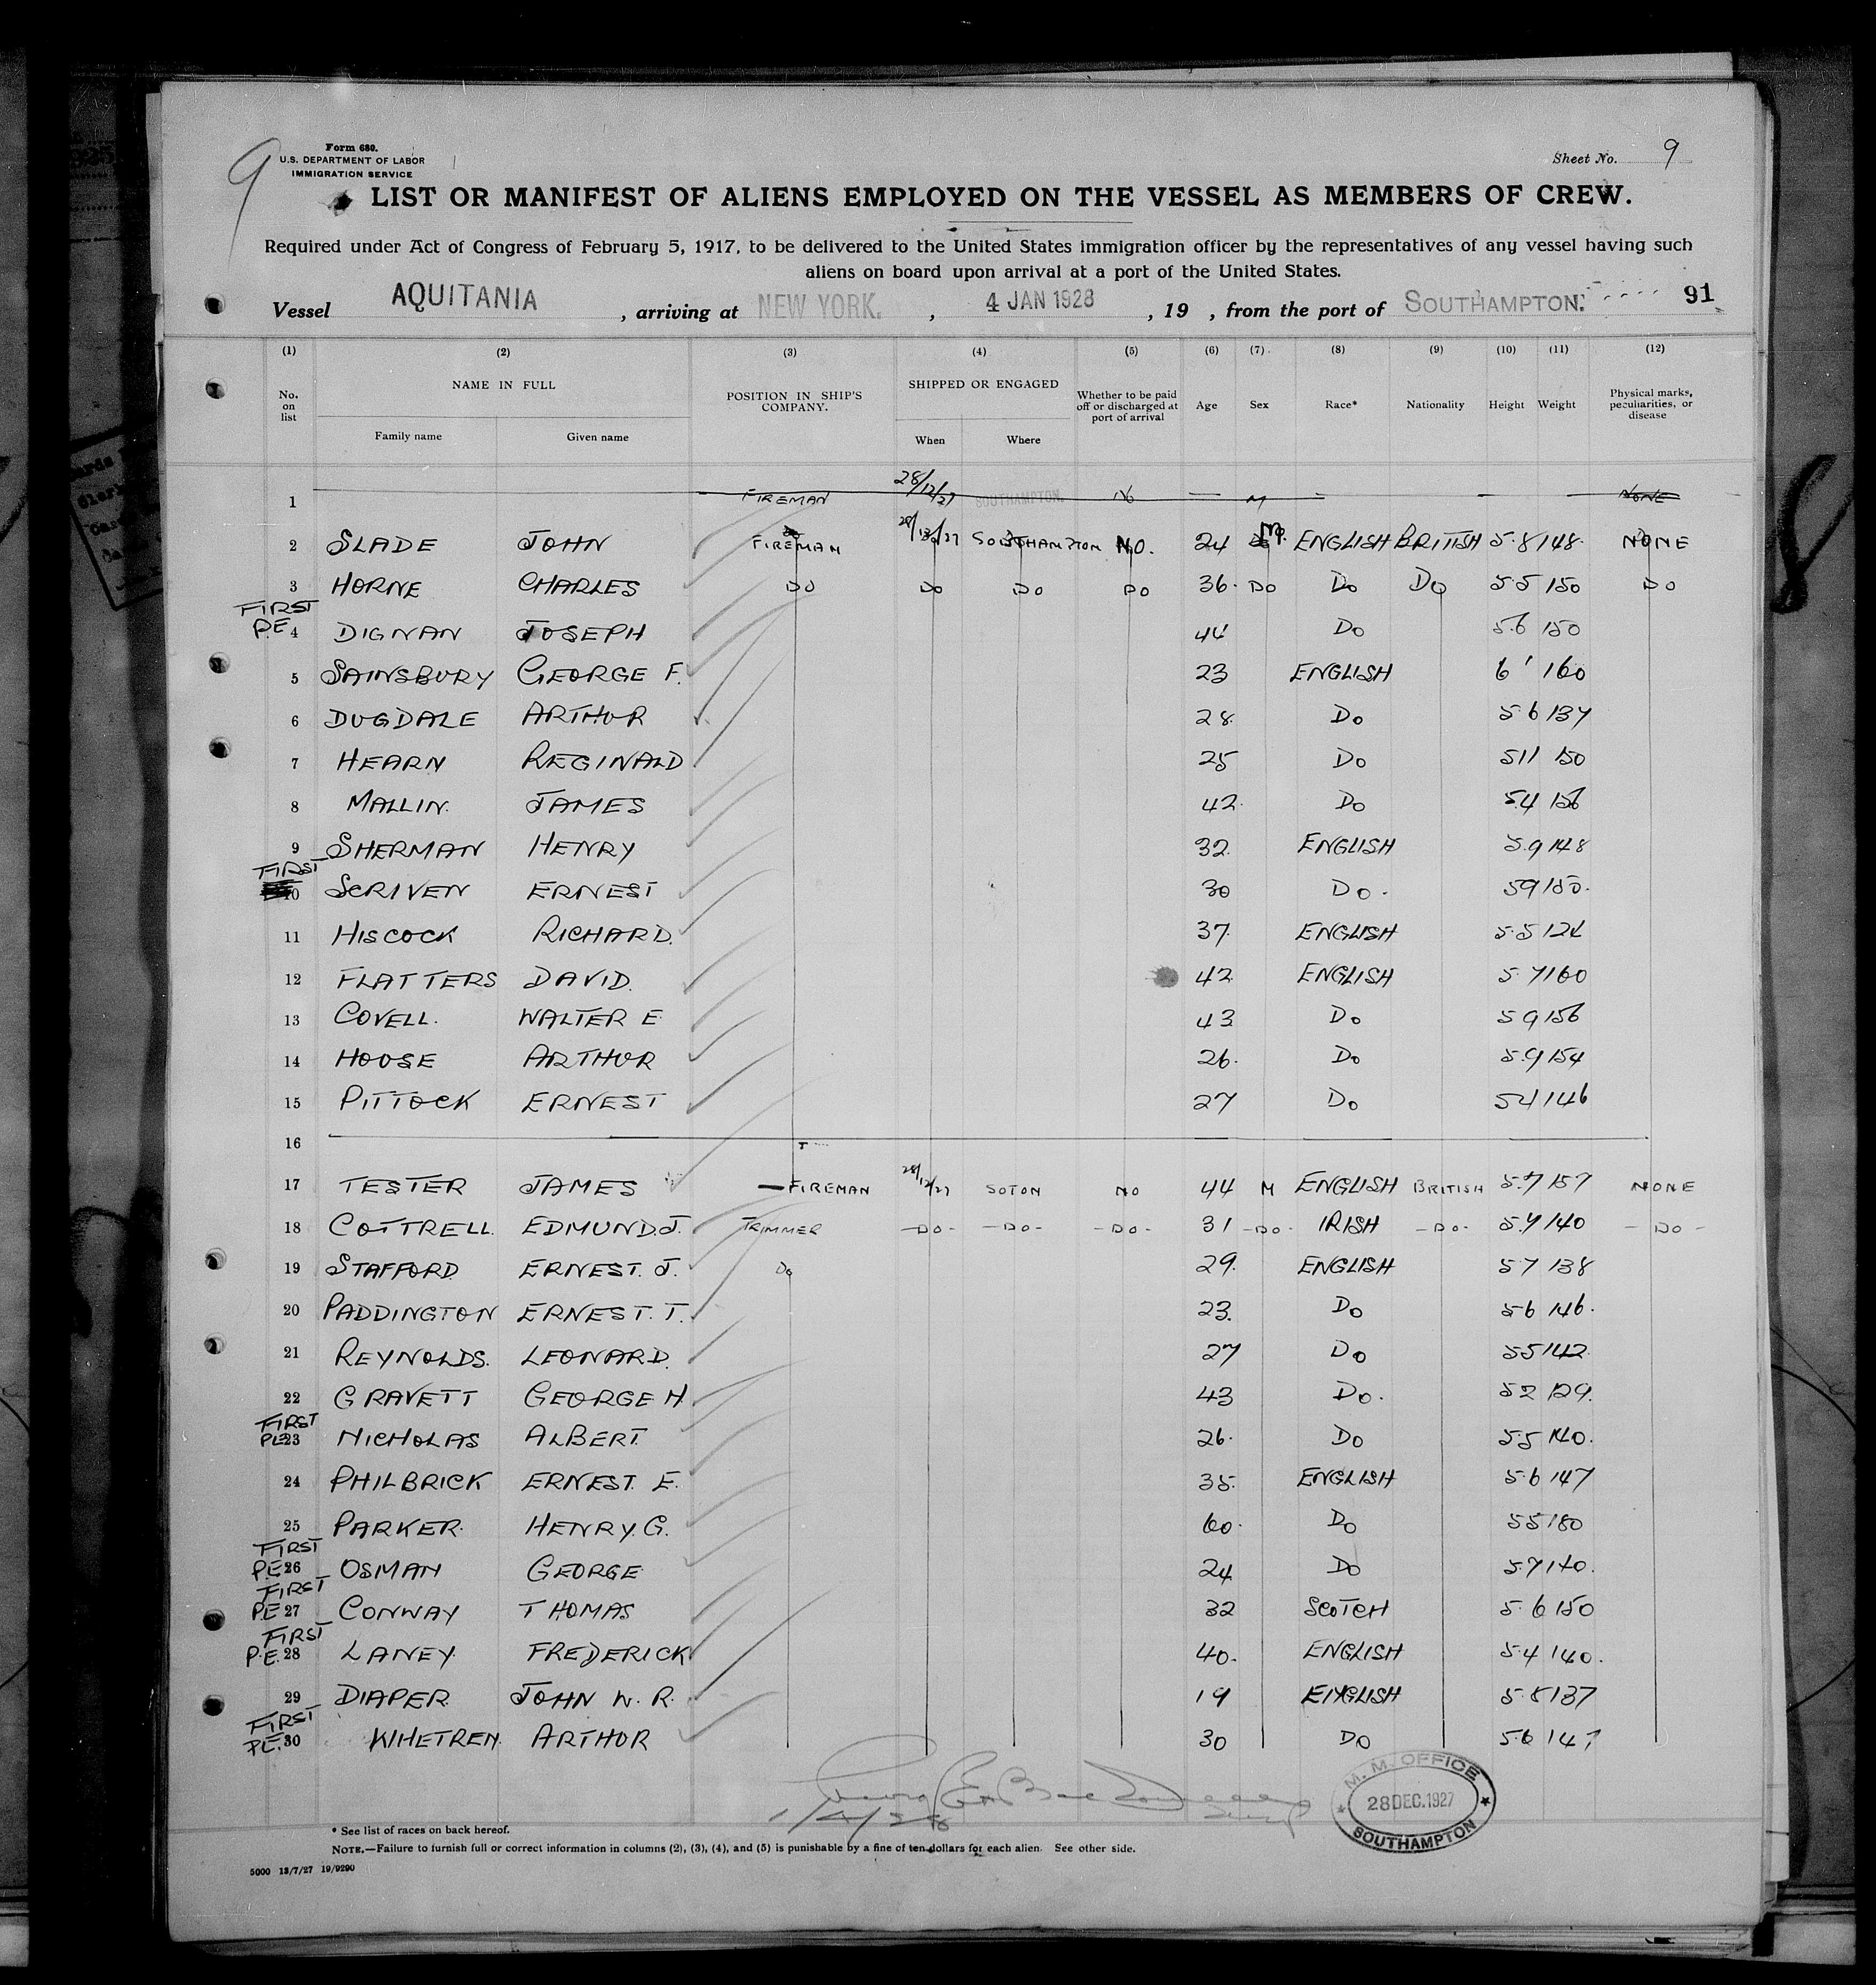 9
Form 680.
U.S. DEPARTMENT OF LABOR
IMMIGRATION SERVICE
Sheet No. 9
LIST OR MANIFEST OF ALIENS EMPLOYED ON THE VESSEL AS MEMBERS OF CREW.
Required under Act of Congress of February 5, 1917, to be delivered to the United States immigration officer by the representatives of any vessel having such
aliens on board upon arrival at a port of the United States.
Vessel AQUITANIA , arriving at NEW YORK. , 4 JAN 1928 , 19 , from the port of SOUTHAMPTON. 91
(1) (2) (3) (4) (5) (6) (7) (8) (9) (10) (11) (12)
No. on list NAME IN FULL POSITION IN SHIP'S COMPANY. SHIPPED OR ENGAGED Whether to be paid off or discharged at port of arrival Age Sex Race* Nationality Height Weight Physical marks, peculiarities, or disease
Family name Given name When Where
1 FIREMAN 28/12/27 SOUTHAMPTON No M NONE
2 SLADE JOHN FIREMAN 28/12/27 SOUTHAMPTON NO. 24 M ENGLISH BRITISH 5.8 148 NONE
3 HORNE CHARLES DO DO DO DO 36. DO Do Do 5.5 150 DO
FIRST
P.E. 4 DIGNAN JOSEPH 44 Do 5.6 150
5 SAINSBURY GEORGE F. 23 ENGLISH 6' 160
6 DUGDALE ARTHUR 28. Do 5.6 137
7 HEARN REGINALD 25 Do 511 150
8 MALLIN. JAMES 42. Do 5.4 156
9 SHERMAN HENRY 32. ENGLISH 5.9 148
FIRST
10 SCRIVEN ERNEST 30 Do. 59 150.
11 HISCOCK RICHARD. 37. ENGLISH 5.5 124
12 FLATTERS DAVID. 42 ENGLISH 5.7 160
13 COVELL. WALTER E. 43 Do 59 156
14 HOUSE ARTHUR 26. Do 5.9 154
15 PITTOCK ERNEST 27 Do 54 146
16
17 TESTER JAMES —FIREMAN 28/12/27 SOTON NO 44 M ENGLISH BRITISH 5.7 157 NONE
18 COTTRELL. EDMUND.J. TRIMMER -DO- -DO- -DO- 31 -DO- IRISH -DO- 5.7 140 -DO-
19 STAFFORD. ERNEST. J. Do 29. ENGLISH 57 138
20 PADDINGTON ERNEST. T. 23. Do 56 146.
21 REYNOLDS. LEONARD. 27 Do 55 142
22 GRAVETT GEORGE H. 43 Do. 52 129.
FIRST
PE 23 NICHOLAS ALBERT. 26. Do 5.5 140.
24 PHILBRICK ERNEST. E. 35. ENGLISH 5.6 147
25 PARKER. HENRY. G. 60. Do 55 180
FIRST
P.E 26 OSMAN GEORGE 24 Do 5.7 140.
FIRST
PE 27 CONWAY THOMAS 32 SCOTCH 5.6 150
FIRST
P.E. 28 LANEY. FREDERICK 40. ENGLISH 5.4 140.
29 DIAPER. JOHN W. R. 19 ENGLISH 5.8 137
FIRST
PE. 30 ARTHUR 30 DO 5.6
1/4/28
M.M. OFFICE
28 DEC. 1927
SOUTHAMPTON
* See list of races on back hereof.
NOTE.—Failure to furnish full or correct information in columns (2), (3), (4), and (5) is punishable by a fine of ten dollars for each alien. See other side.
5000 13/7/27 19/9290